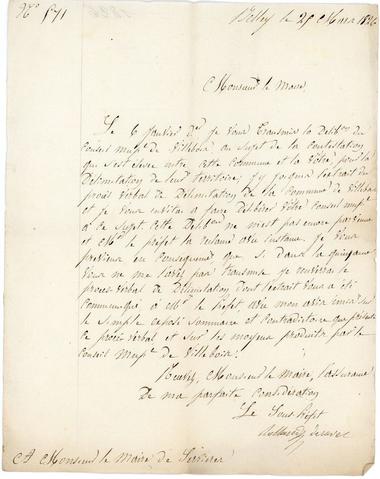 N° 571
Belley le 29 Mars 1826
Monsieur le Maire,
Le 6 Janvier dr je vous transmis la Délibon du
Conseil mupal de Villebois au sujet de la Contestation
qui s'est élevée entre cette Commune et la Vôtre, pour la
Délimitation de leur territoire; j'y joignis l'extrait du
procès verbal de Délimitation de la Commune de Villebois
et je vous invitai à faire délibérer Votre Conseil mupal
à ce sujet. Cette Délibon ne m'est pas encore parvenue
et Mr le préfet la réclame avec instance. Je vous
préviens en Conséquence que si dans la quinzaine
vous ne me l'avez pas transmise je renverrai le
procès verbal de Délimitation dont l'extrait vous a été
Communiqué à Mr le Préfet avec mon avis sur
le Simple exposé Sommaire et Contradictoire que présente
ce procès verbal et sur les moyens produits par le
Conseil Mupal de Villebois.
Recevez, Monsieur le Maire, l'assurance
De ma parfaite Considération
Le Sous Préfet
A Monsieur le Maire de